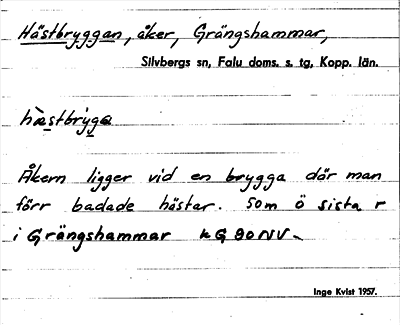 Hästbryggan, åker, Grängshammar,
Silvbergs sn, Falu doms. s. tg, Kopp. län.
hæstbryga
Åkern ligger vid en brygga där man
förr badade hästar. Som ö sista r
i Grängshammar k G 80 NV.
Inge Kvist 1957.